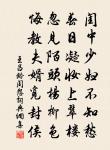 闺中少妇不知愁
春日凝妆上翠楼
忽见陌头杨柳色
悔教夫婿觅封侯
王昌龄闺怨词典网集